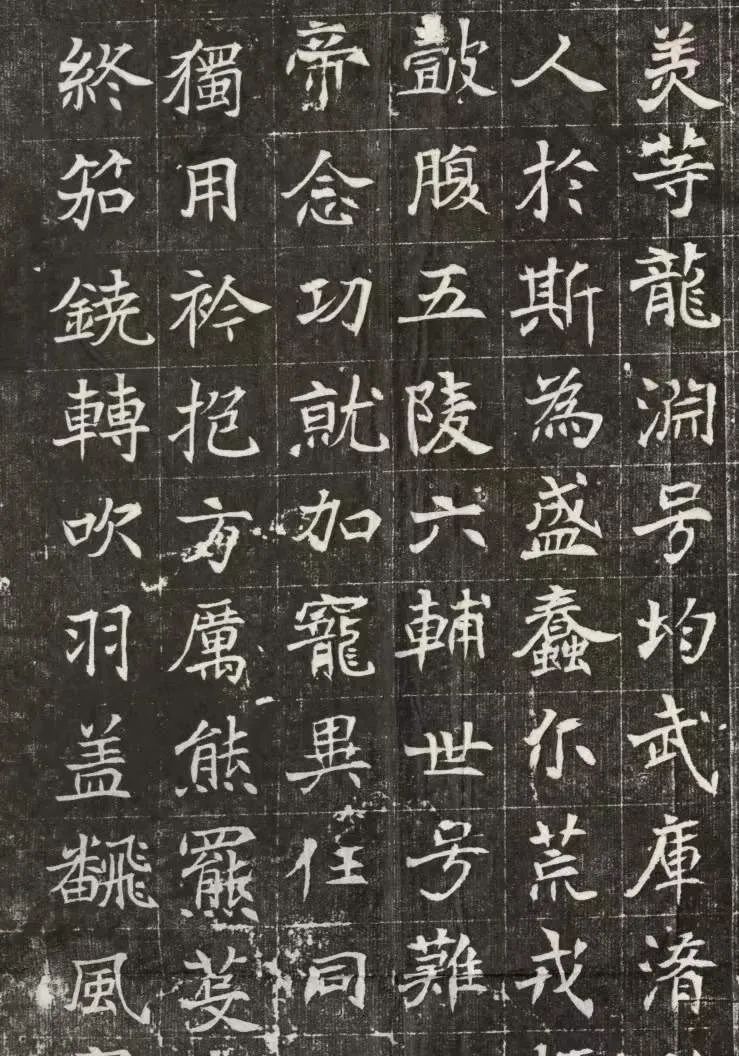 美等龍淵号均武庫濳
人於斯為盛蠢尒荒戎
鼓腹五陵六輔世号難
帝念功就加寵異任同
獨用衿抱方厲熊羆荽
終笳鐃轉吹羽盖飜風